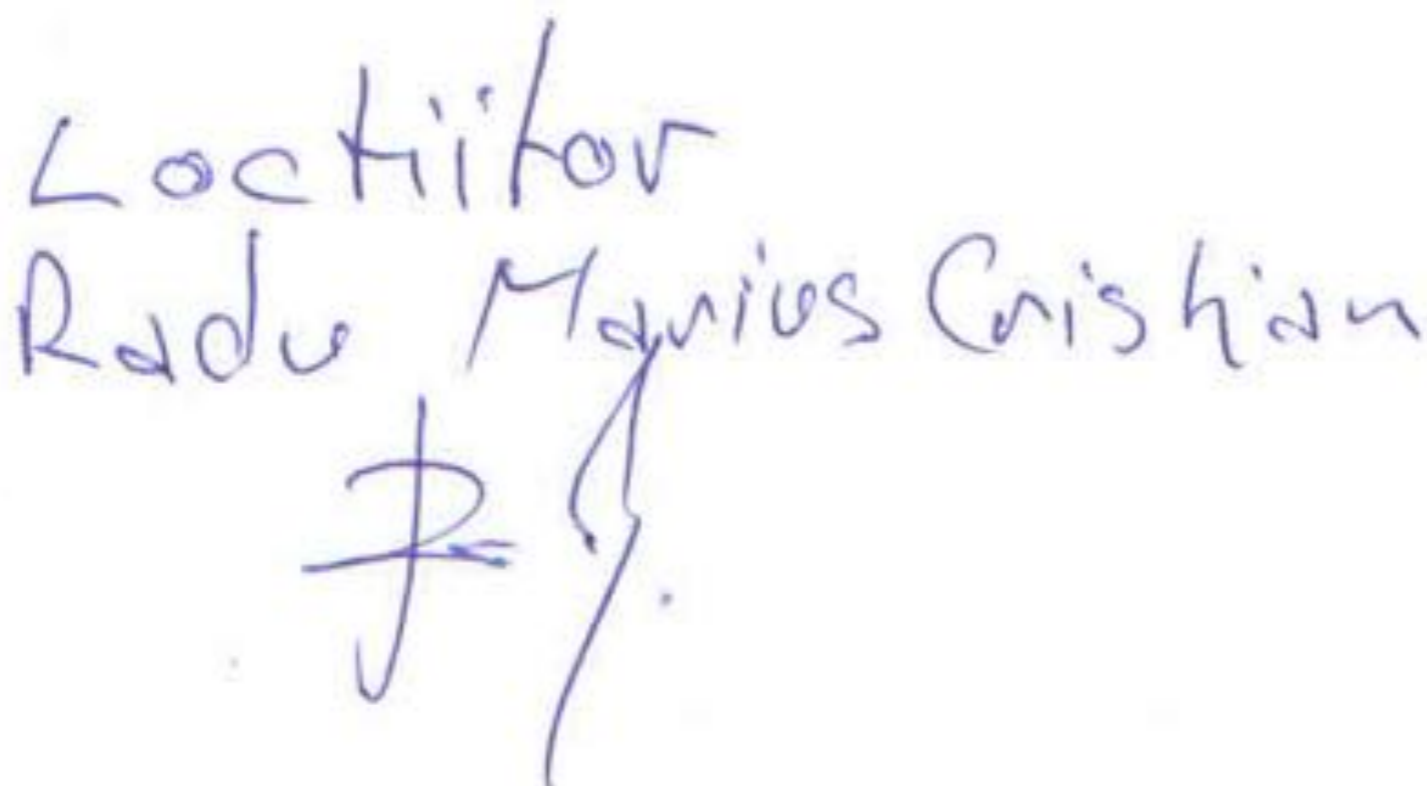 Loctiitor
Radu Marius Cristian